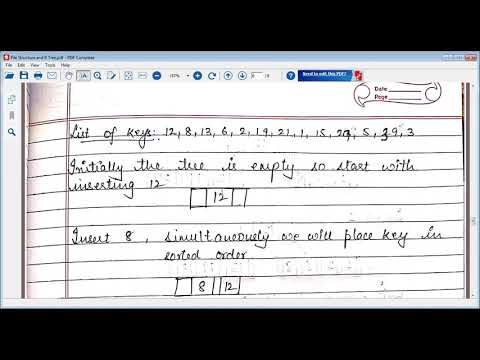 File Structure and B Tree.pdf - PDF Complete
File Edit View Tools Help
Need to edit this PDF?
Date
Page
List of keys: 12, 8, 13, 6, 2, 19, 21, 1, 15, 5, 3
Initially the tree is empty so start with
inserting 12
12
Insert 8, simultaneously we will place key in
sorted order
8 12